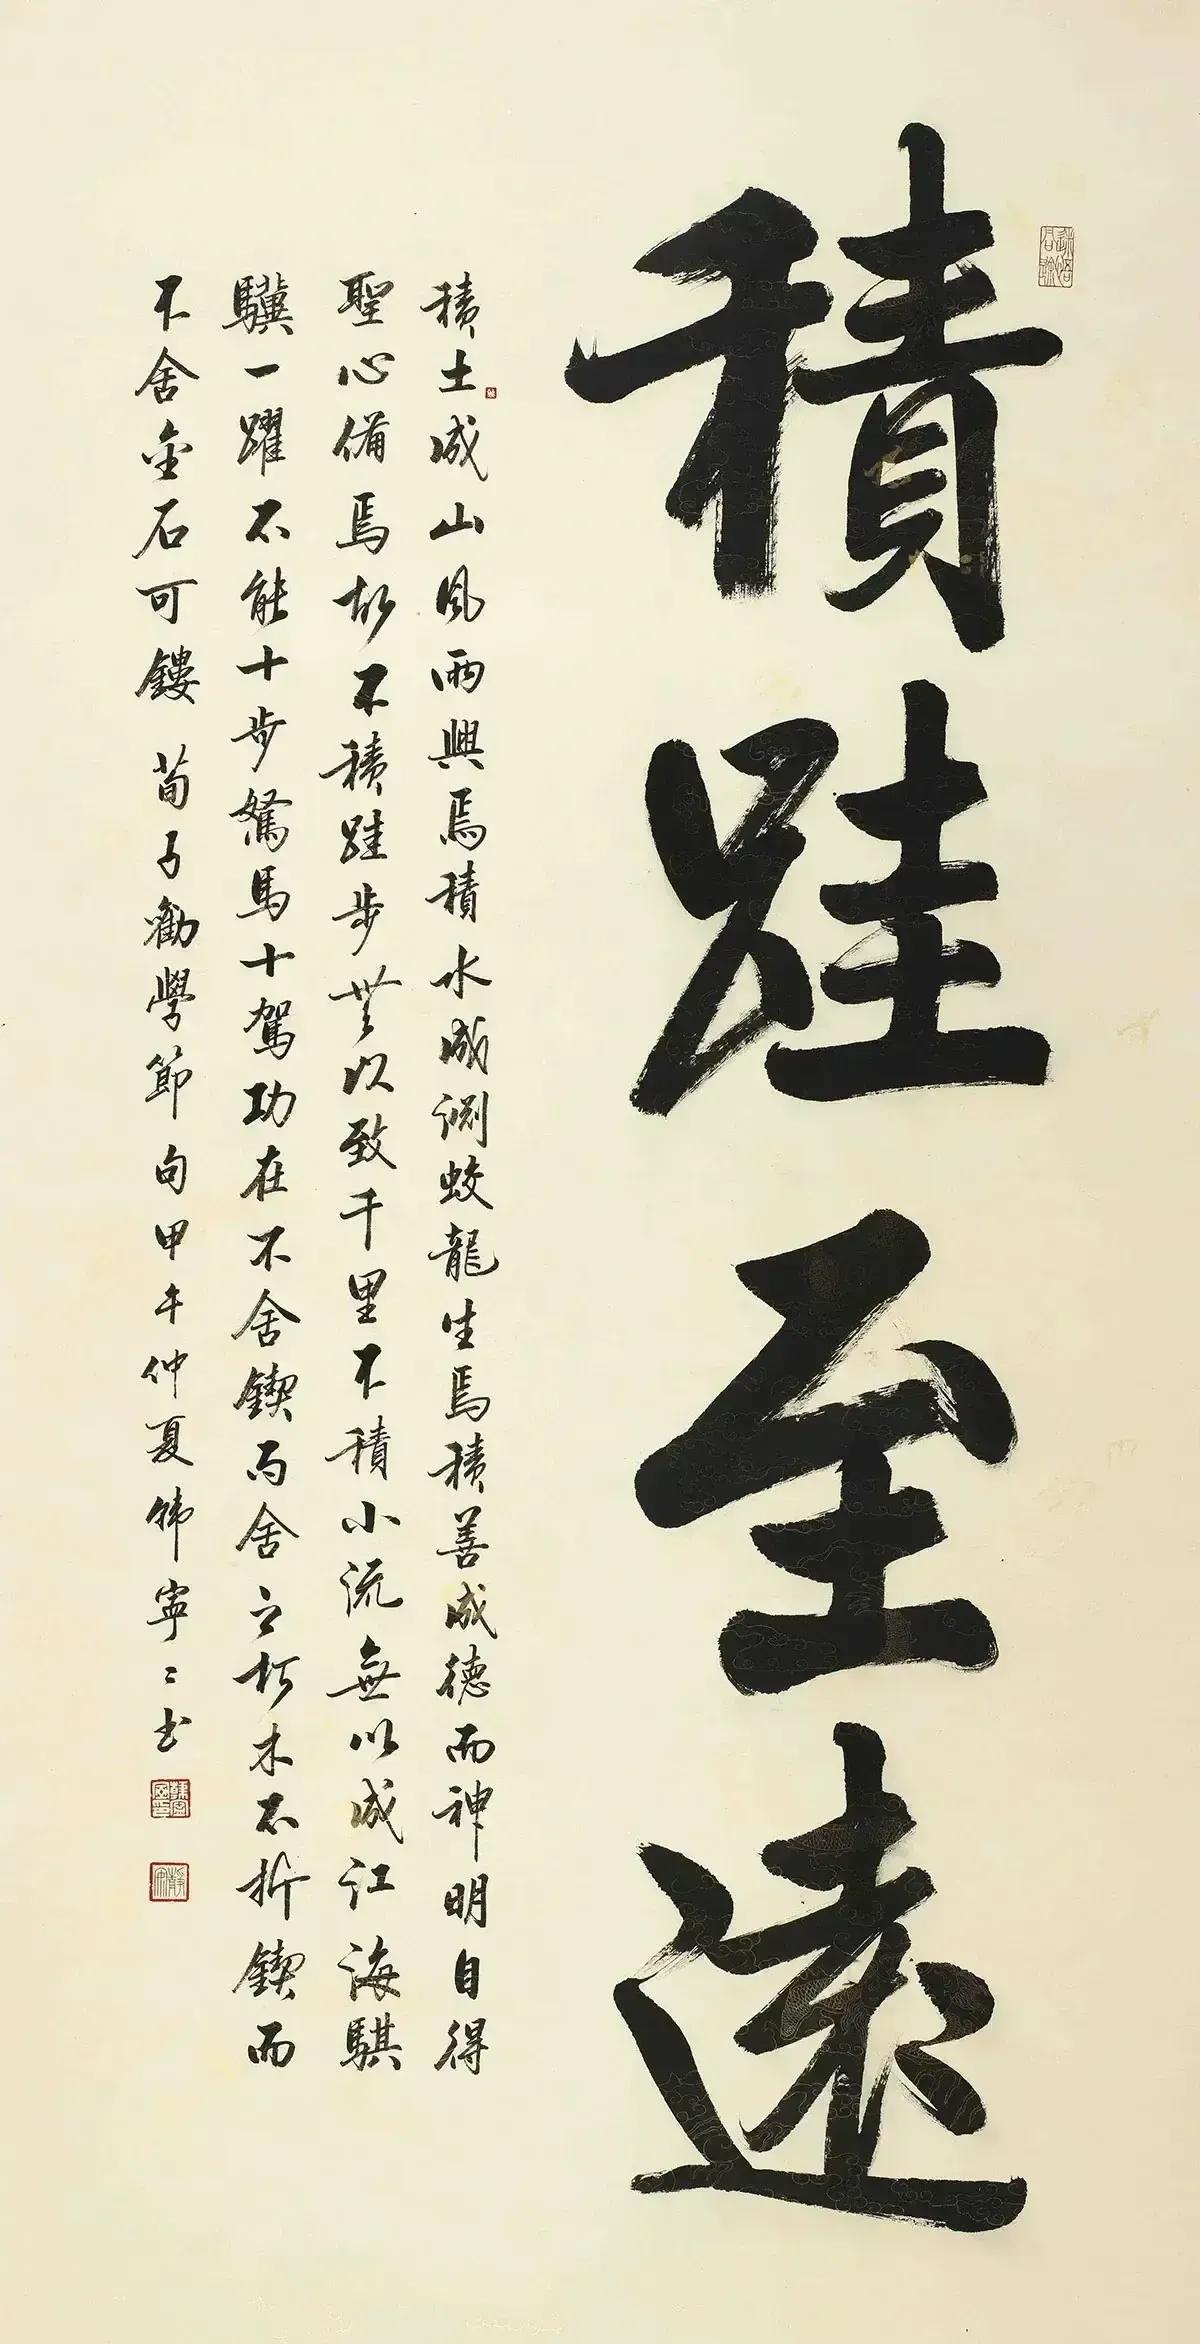 積跬至遠
積土成山風雨興焉積水成渊蛟龍生焉積善成德而神明自得
聖心備焉故不積跬步無以致千里不積小流無以成江海騏
驥一躍不能十步駑馬十駕功在不舍鍥而舍之朽木不折鍥而
不舍金石可鏤 荀子勸學節句甲午仲夏韩寧〻书